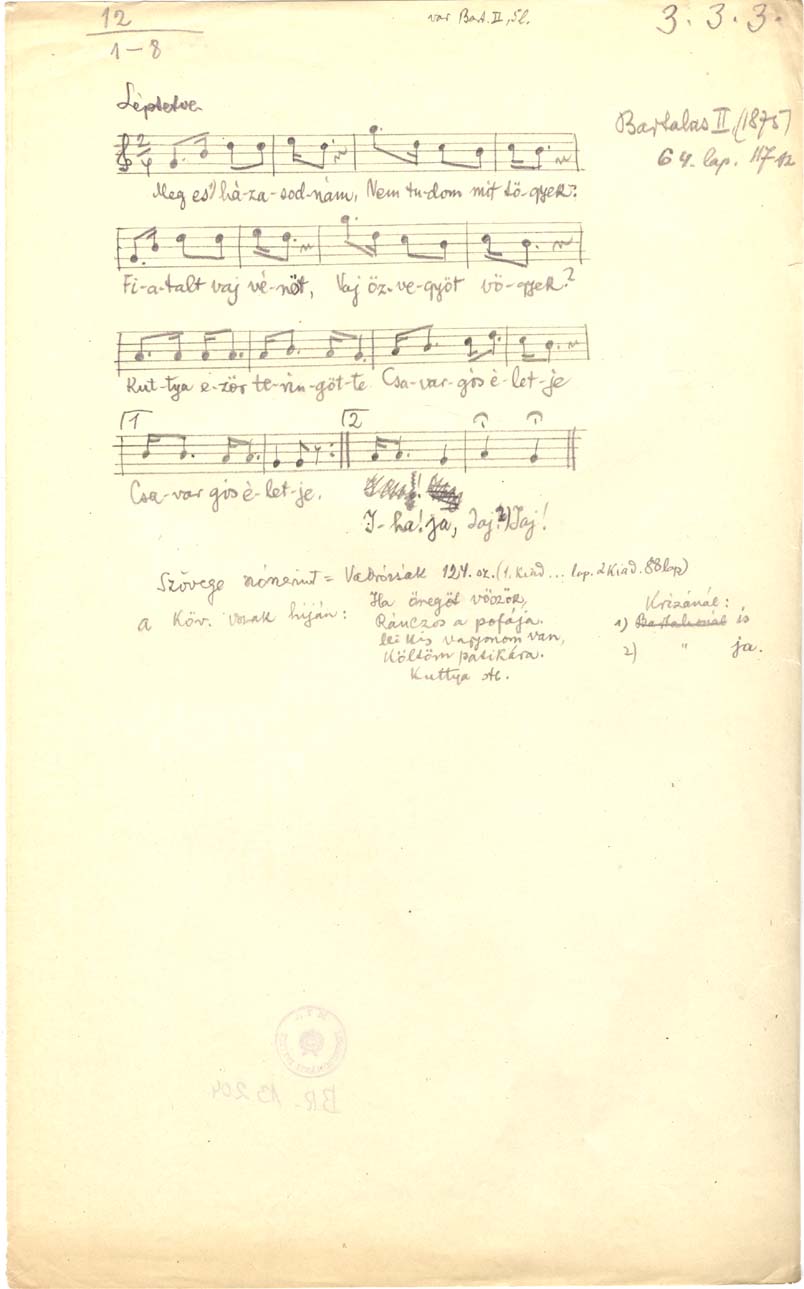 12
1-8
var Bart. II, 51.
3. 3. 3.
Léptetve
Bartalus II, (1875)
64. lap. 117 sz
Meg es¹⁾ há-za-sod-nám, Nem tu-dom mit tö-gyek?
Fi-a-talt vaj vé-nöt, Vaj öz-ve-gyöt vö-gyek?
Kut-tya e-zör te-rin-göt-te Csa-var-gós é-let-je
1 2
Csa-var gós é-let-je.
I-ha! ja, Jaj!²⁾ Jaj!
Szövege = Vadrózsák 124. sz. (1. Kiad ... lap. 2 Kiad. 88 lap)
a Köv. vsrak híján:
Ha öregöt vöözök,
Ránczos a pofája.
kis vagyonom van,
Költöm patikára.
Kuttya st.
Krizánál:
1) Bartalusnál is
2) " ja.
BR_13204